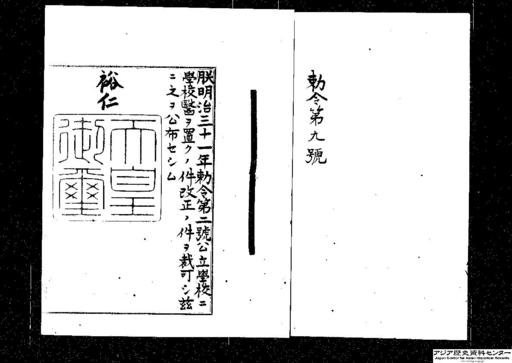 勅令第九號
朕明治三十一年勅令第二號公立學校ニ
學校醫ヲ置クノ件改正ノ件ヲ裁可シ茲
ニ之ヲ公布セシム
裕仁
天皇
御璽
アジア歴史資料センター
Japan Center for Asian Historical Records